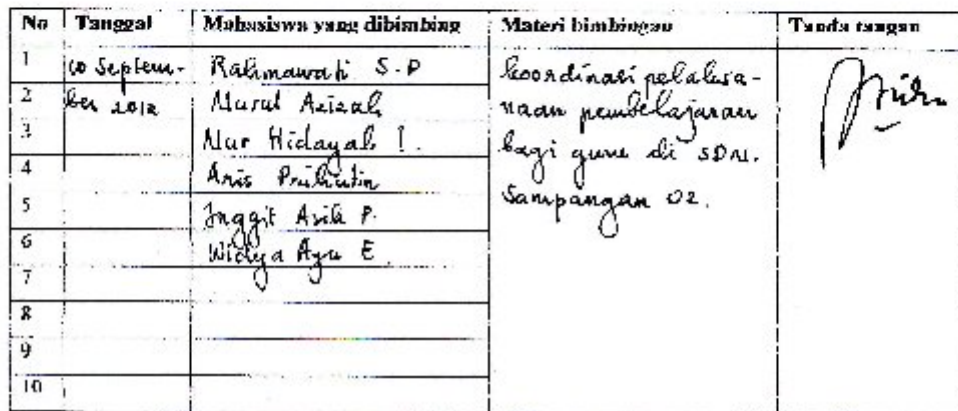 No Tanggal Mahasiswa yang dibimbing Materi bimbingan Tanda tangan
1 10 Septem- Rahmawati S.P koordinasi pelaksa-
2 ber 2012 Nurul Azizah naan pembelajaran
3 Nur Hidayah I. bagi guru di SDN.
4 Anis Prihatin Sampangan 02.
5 Inggit Asih P.
6 Widya Ayu E
7
8
9
10